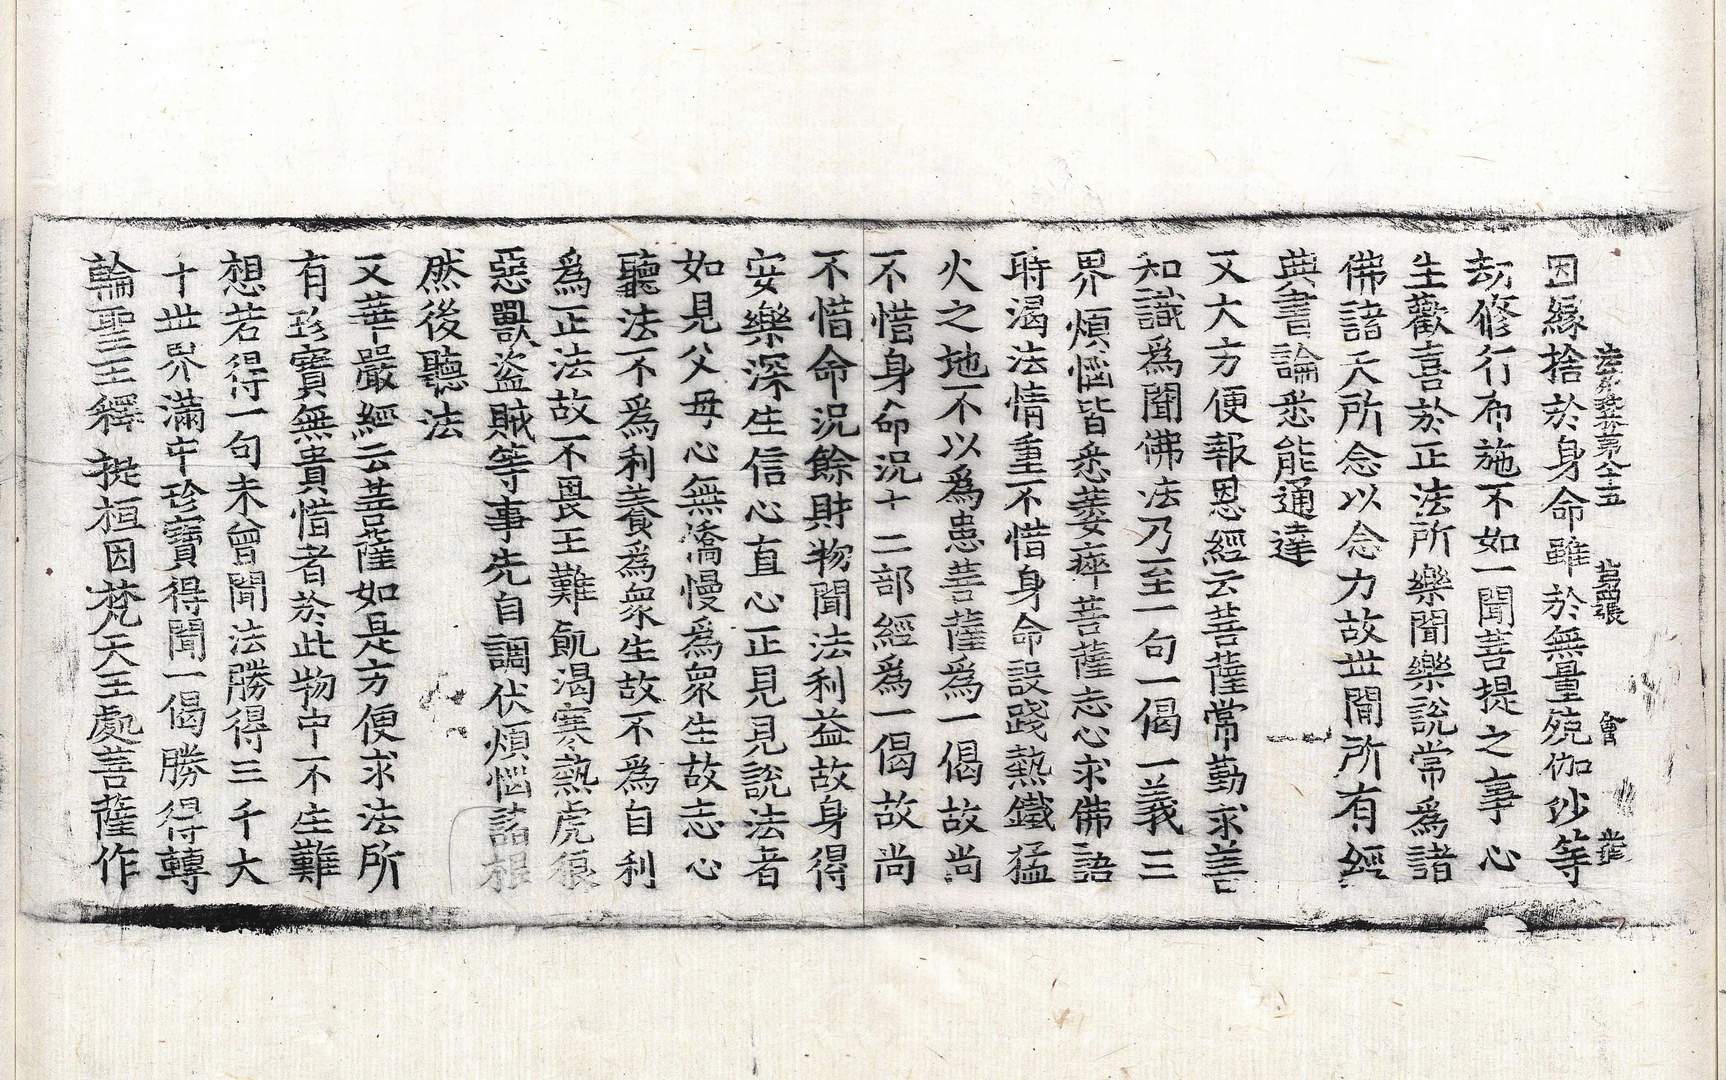 法苑珠林第八十五 苐四張 會
因緣捨於身命雖於無量殑伽沙等
劫修行布施不如一聞菩提之事心
生歡喜於正法所樂聞樂說常為諸
佛諸天所念以念力故世間所有經
典書論悉能通達
又大方便報恩經云菩薩常勤求善
知識為聞佛法乃至一句一偈一義三
界煩惱皆悉萎瘁菩薩志心求佛語
時渴法情重不惜身命設踐熱鐵猛
火之地不以為患菩薩為一偈故尚
不惜身命況十二部經為一偈故尚
不惜命況餘財物聞法利益故身得
安樂深生信心直心正見見說法者
如見父母心無憍慢為眾生故志心
聽法不為利養為眾生故不為自利
為正法故不畏王難飢渴寒熱虎狼
惡獸盜賊等事先自調伏煩惱諸根
然後聽法
又華嚴經云菩薩如是方便求法所
有珍寶無貴惜者於此物中不生難
想若得一句未曾聞法勝得三千大
千世界滿中珍寶得聞一偈勝得轉
輪聖王釋提桓因梵天王處菩薩作